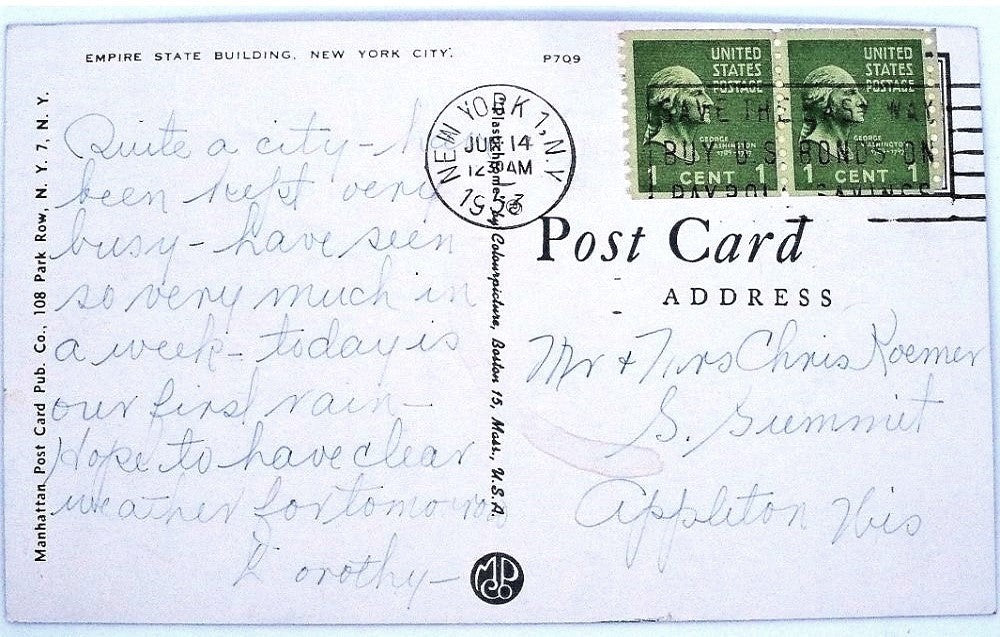 EMPIRE STATE BUILDING, NEW YORK CITY.
P709
Manhattan Post Card Pub. Co., 108 Park Row, N. Y. 7, N. Y.
Quite a city - have
been kept very
busy - have seen
so very much in
a week - today is
our first rain -
Hope to have clear
weather for tomorrow
Dorothy -
Plastichrome by Colourpicture, Boston 15, Mass., U.S.A.
MPCo
NEW YORK 1, N.Y.
JUN 14
12 30 AM
1953
UNITED
STATES
POSTAGE
GEORGE
WASHINGTON
1 CENT 1
UNITED
STATES
POSTAGE
GEORGE
WASHINGTON
1 CENT 1
SAVE THE EASY WAY
BUY U S BONDS ON
PAYROLL SAVINGS
Post Card
ADDRESS
Mr & Mrs Chris Roemer
S. Summit
Appleton Wis